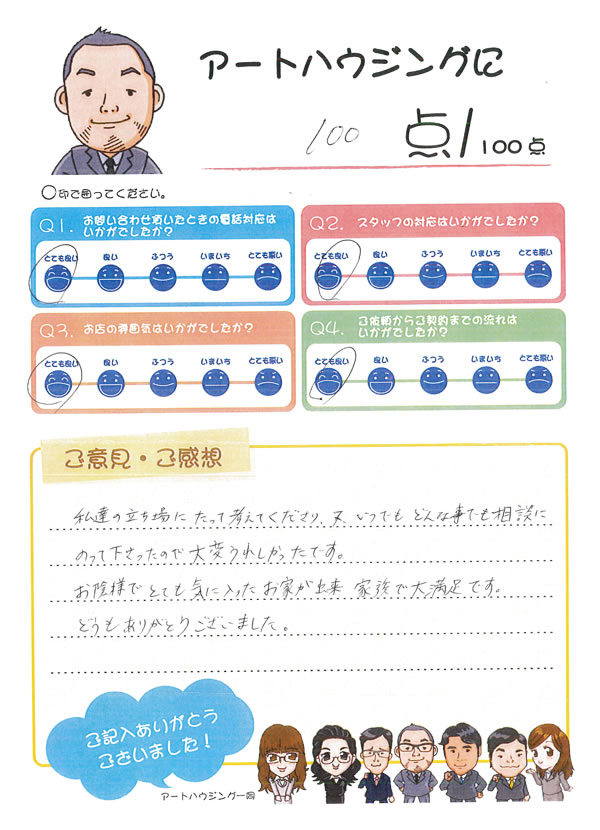 アートハウジングに
100 点/100点
○印で囲ってください。
Q1. お問い合わせ頂いたときの電話対応は
いかがでしたか?
とても良い 良い ふつう いまいち とても悪い
Q2. スタッフの対応はいかがでしたか?
とても良い 良い ふつう いまいち とても悪い
Q3. お店の雰囲気はいかがでしたか?
とても良い 良い ふつう いまいち とても悪い
Q4. ご依頼からご契約までの流れは
いかがでしたか?
とても良い 良い ふつう いまいち とても悪い
ご意見・ご感想
私達の立ち場にたって考えてくださり、又、いつでもどんな事でも相談に
のって下さったので大変うれしかったです。
お陰様でとても気に入ったお家が出来 家族で大満足です。
どうもありがとうございました。
ご記入ありがとう
ございました!
アートハウジング一同